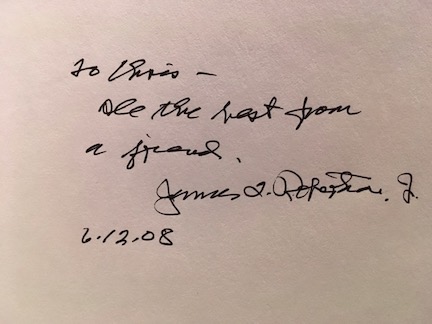 To Chris –
All the best from
a friend.
James I. Robertson, Jr.
6.12.08